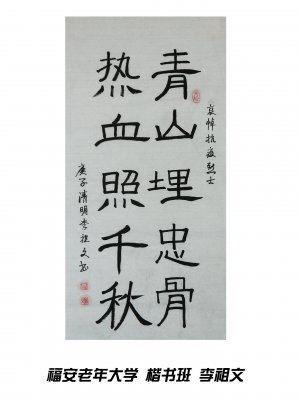 哀悼抗疫烈士
青山埋忠骨
热血照千秋
庚子清明李祖文书
福安老年大学 楷书班 李祖文